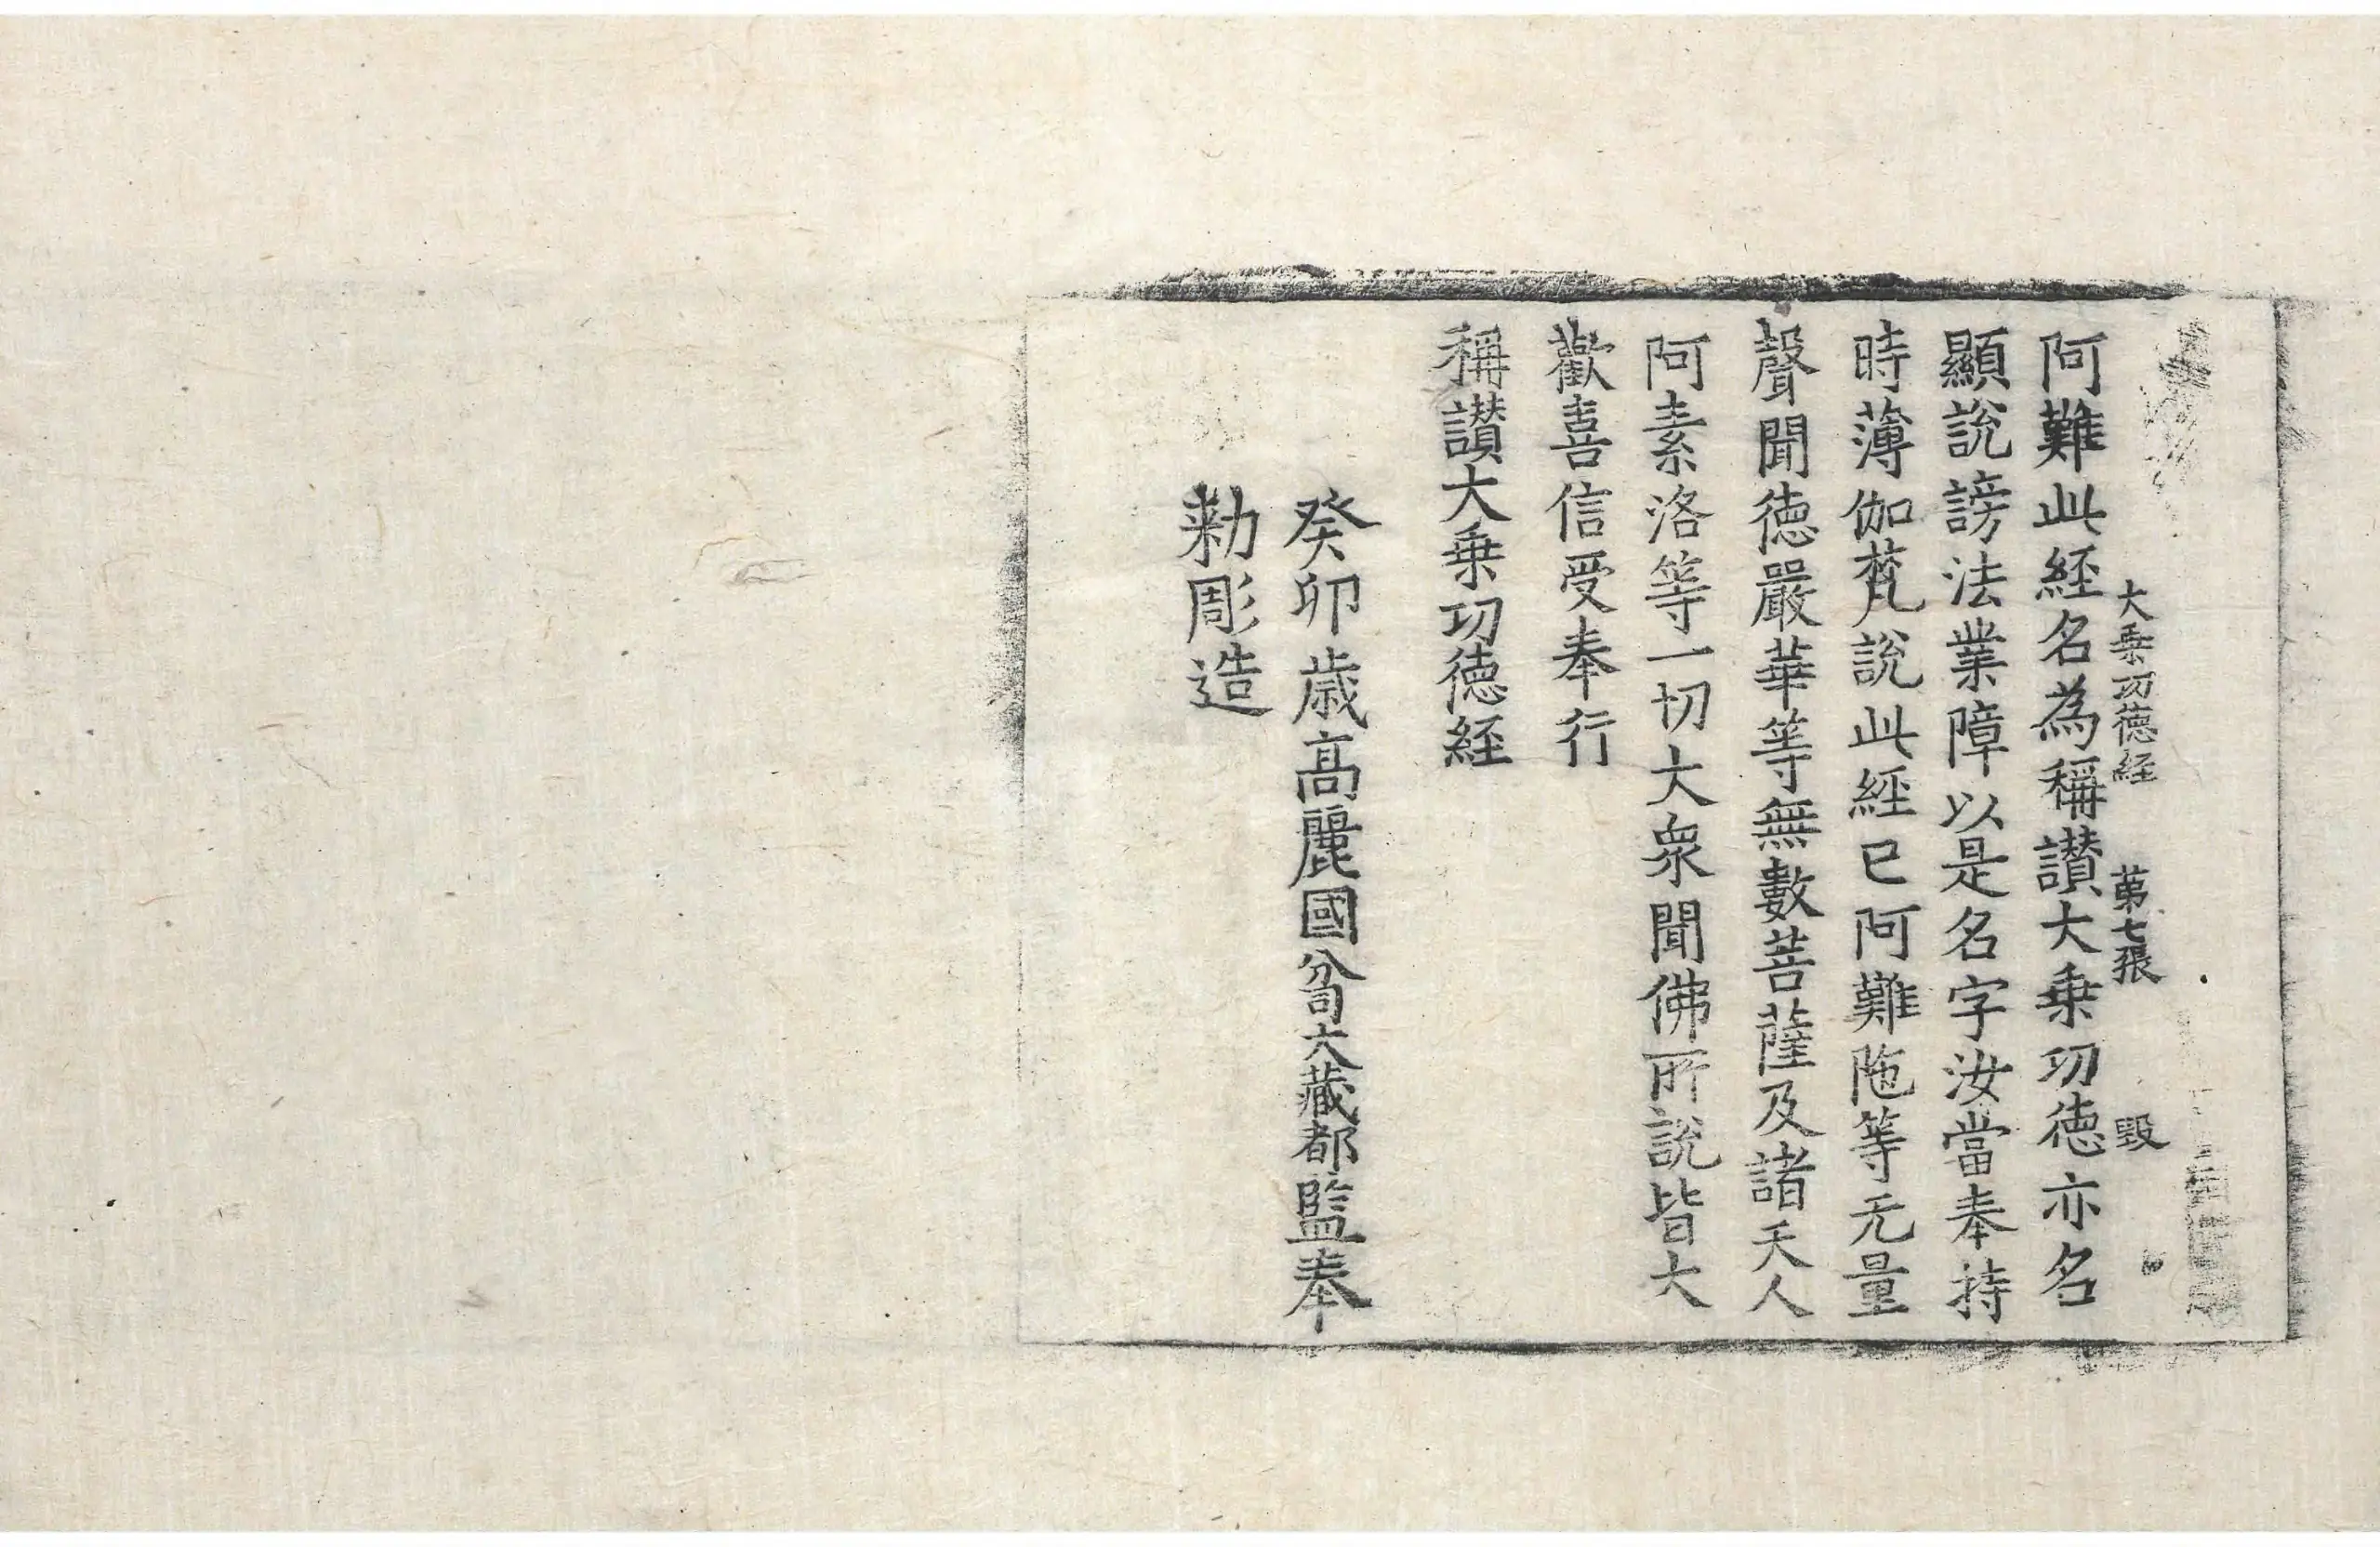 大乗功徳経 第七張 毀
阿難此経名為稱讃大乗功徳亦名
顯說謗法業障以是名字汝當奉持
時薄伽梵說此經已阿難陁等无量
聲聞徳嚴華等無數菩薩及諸天人
阿素洛等一切大衆聞佛所說皆大
歡喜信受奉行
稱讃大乗功徳経
癸卯歳高麗國分司大藏都監奉
勑彫造